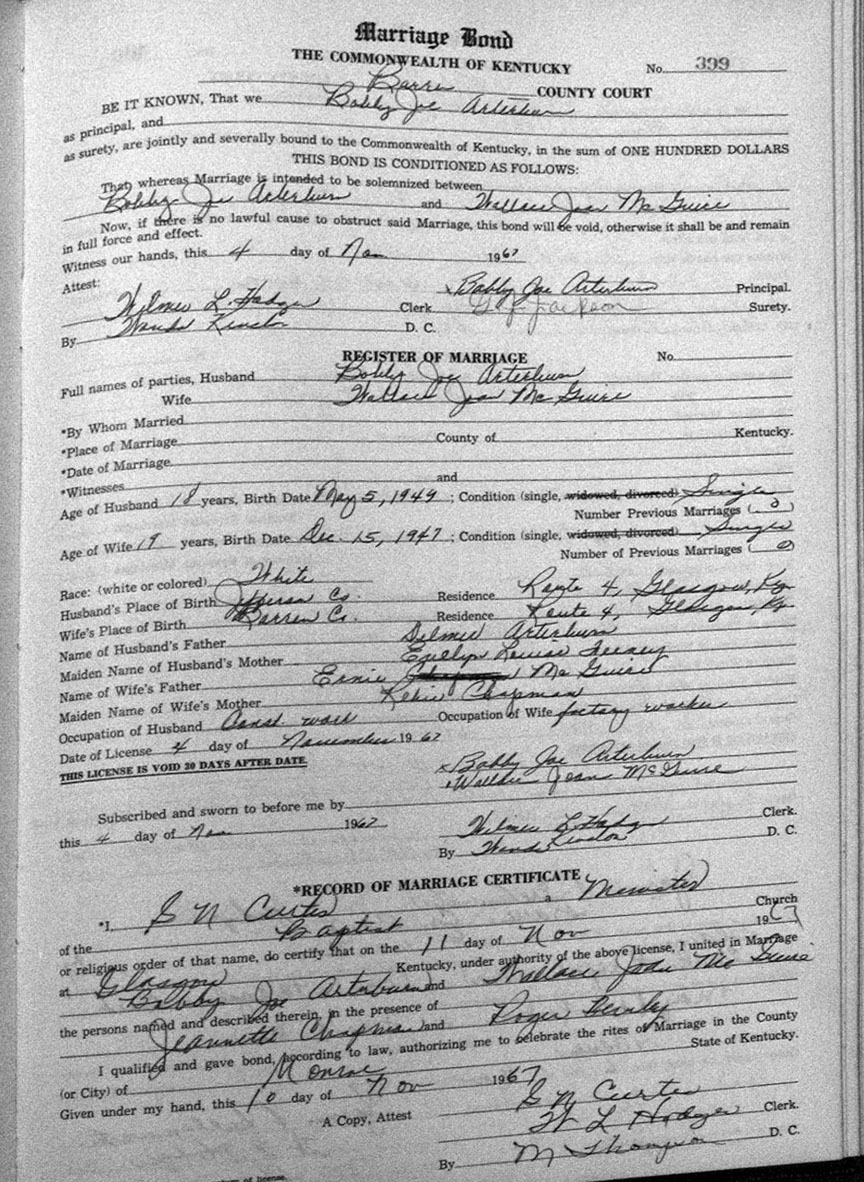 Marriage Bond
THE COMMONWEALTH OF KENTUCKY No. 399
Barren COUNTY COURT
BE IT KNOWN, That we Bobby Joe Arterburn
as principal, and
as surety, are jointly and severally bound to the Commonwealth of Kentucky, in the sum of ONE HUNDRED DOLLARS
THIS BOND IS CONDITIONED AS FOLLOWS:
That whereas Marriage is intended to be solemnized between
Bobby Joe Arterburn and Wallace Jean McGuire
Now, if there is no lawful cause to obstruct said Marriage, this bond will be void, otherwise it shall be and remain
in full force and effect.
Witness our hands, this 4 day of Nov 1967
Attest:
Bobby Joe Arterburn Principal.
Wilmer L. Hodges Clerk Jackson Surety.
By Wanda D. C.
REGISTER OF MARRIAGE No.
Full names of parties, Husband Bobby Joe Arterburn
Wife Wallace Jean McGuire
*By Whom Married
*Place of Marriage County of Kentucky.
*Date of Marriage
*Witnesses and
Age of Husband 18 years, Birth Date May 5, 1949; Condition (single, widowed, divorced) Single
Number Previous Marriages (0)
Age of Wife 19 years, Birth Date Dec. 15, 1947; Condition (single, widowed, divorced) Single
Number of Previous Marriages (0)
Race: (white or colored) White
Husband's Place of Birth Co. Residence Route 4, Glasgow, Ky
Wife's Place of Birth Barren Co. Residence Route 4, Glasgow, Ky
Name of Husband's Father Delmer Arterburn
Maiden Name of Husband's Mother Evelyn Louise
Name of Wife's Father Ernie Chapman McGuire
Maiden Name of Wife's Mother Chapman
Occupation of Husband Const. work Occupation of Wife factory worker
Date of License 4 day of November 1967
THIS LICENSE IS VOID 30 DAYS AFTER DATE
x Bobby Joe Arterburn
x Wallace Jean McGuire
Subscribed and sworn to before me by
this 4 day of Nov 1967 Wilmer L. Hodges Clerk.
By Wanda D. C.
*RECORD OF MARRIAGE CERTIFICATE
*I, S N Curtis a Minister
of the Baptist Church
or religious order of that name, do certify that on the 11 day of Nov 1967
at Glasgow Kentucky, under authority of the above license, I united in Marriage
Bobby Joe Arterburn and Wallace Jean McGuire
the persons named and described therein, in the presence of
Jeannette Chapman and Roger
I qualified and gave bond, according to law, authorizing me to celebrate the rites of Marriage in the County
(or City) of Monroe State of Kentucky.
Given under my hand, this 10 day of Nov 1967
S N Curtis
A Copy, Attest W L Hodges Clerk.
By M Thompson D. C.
of license.